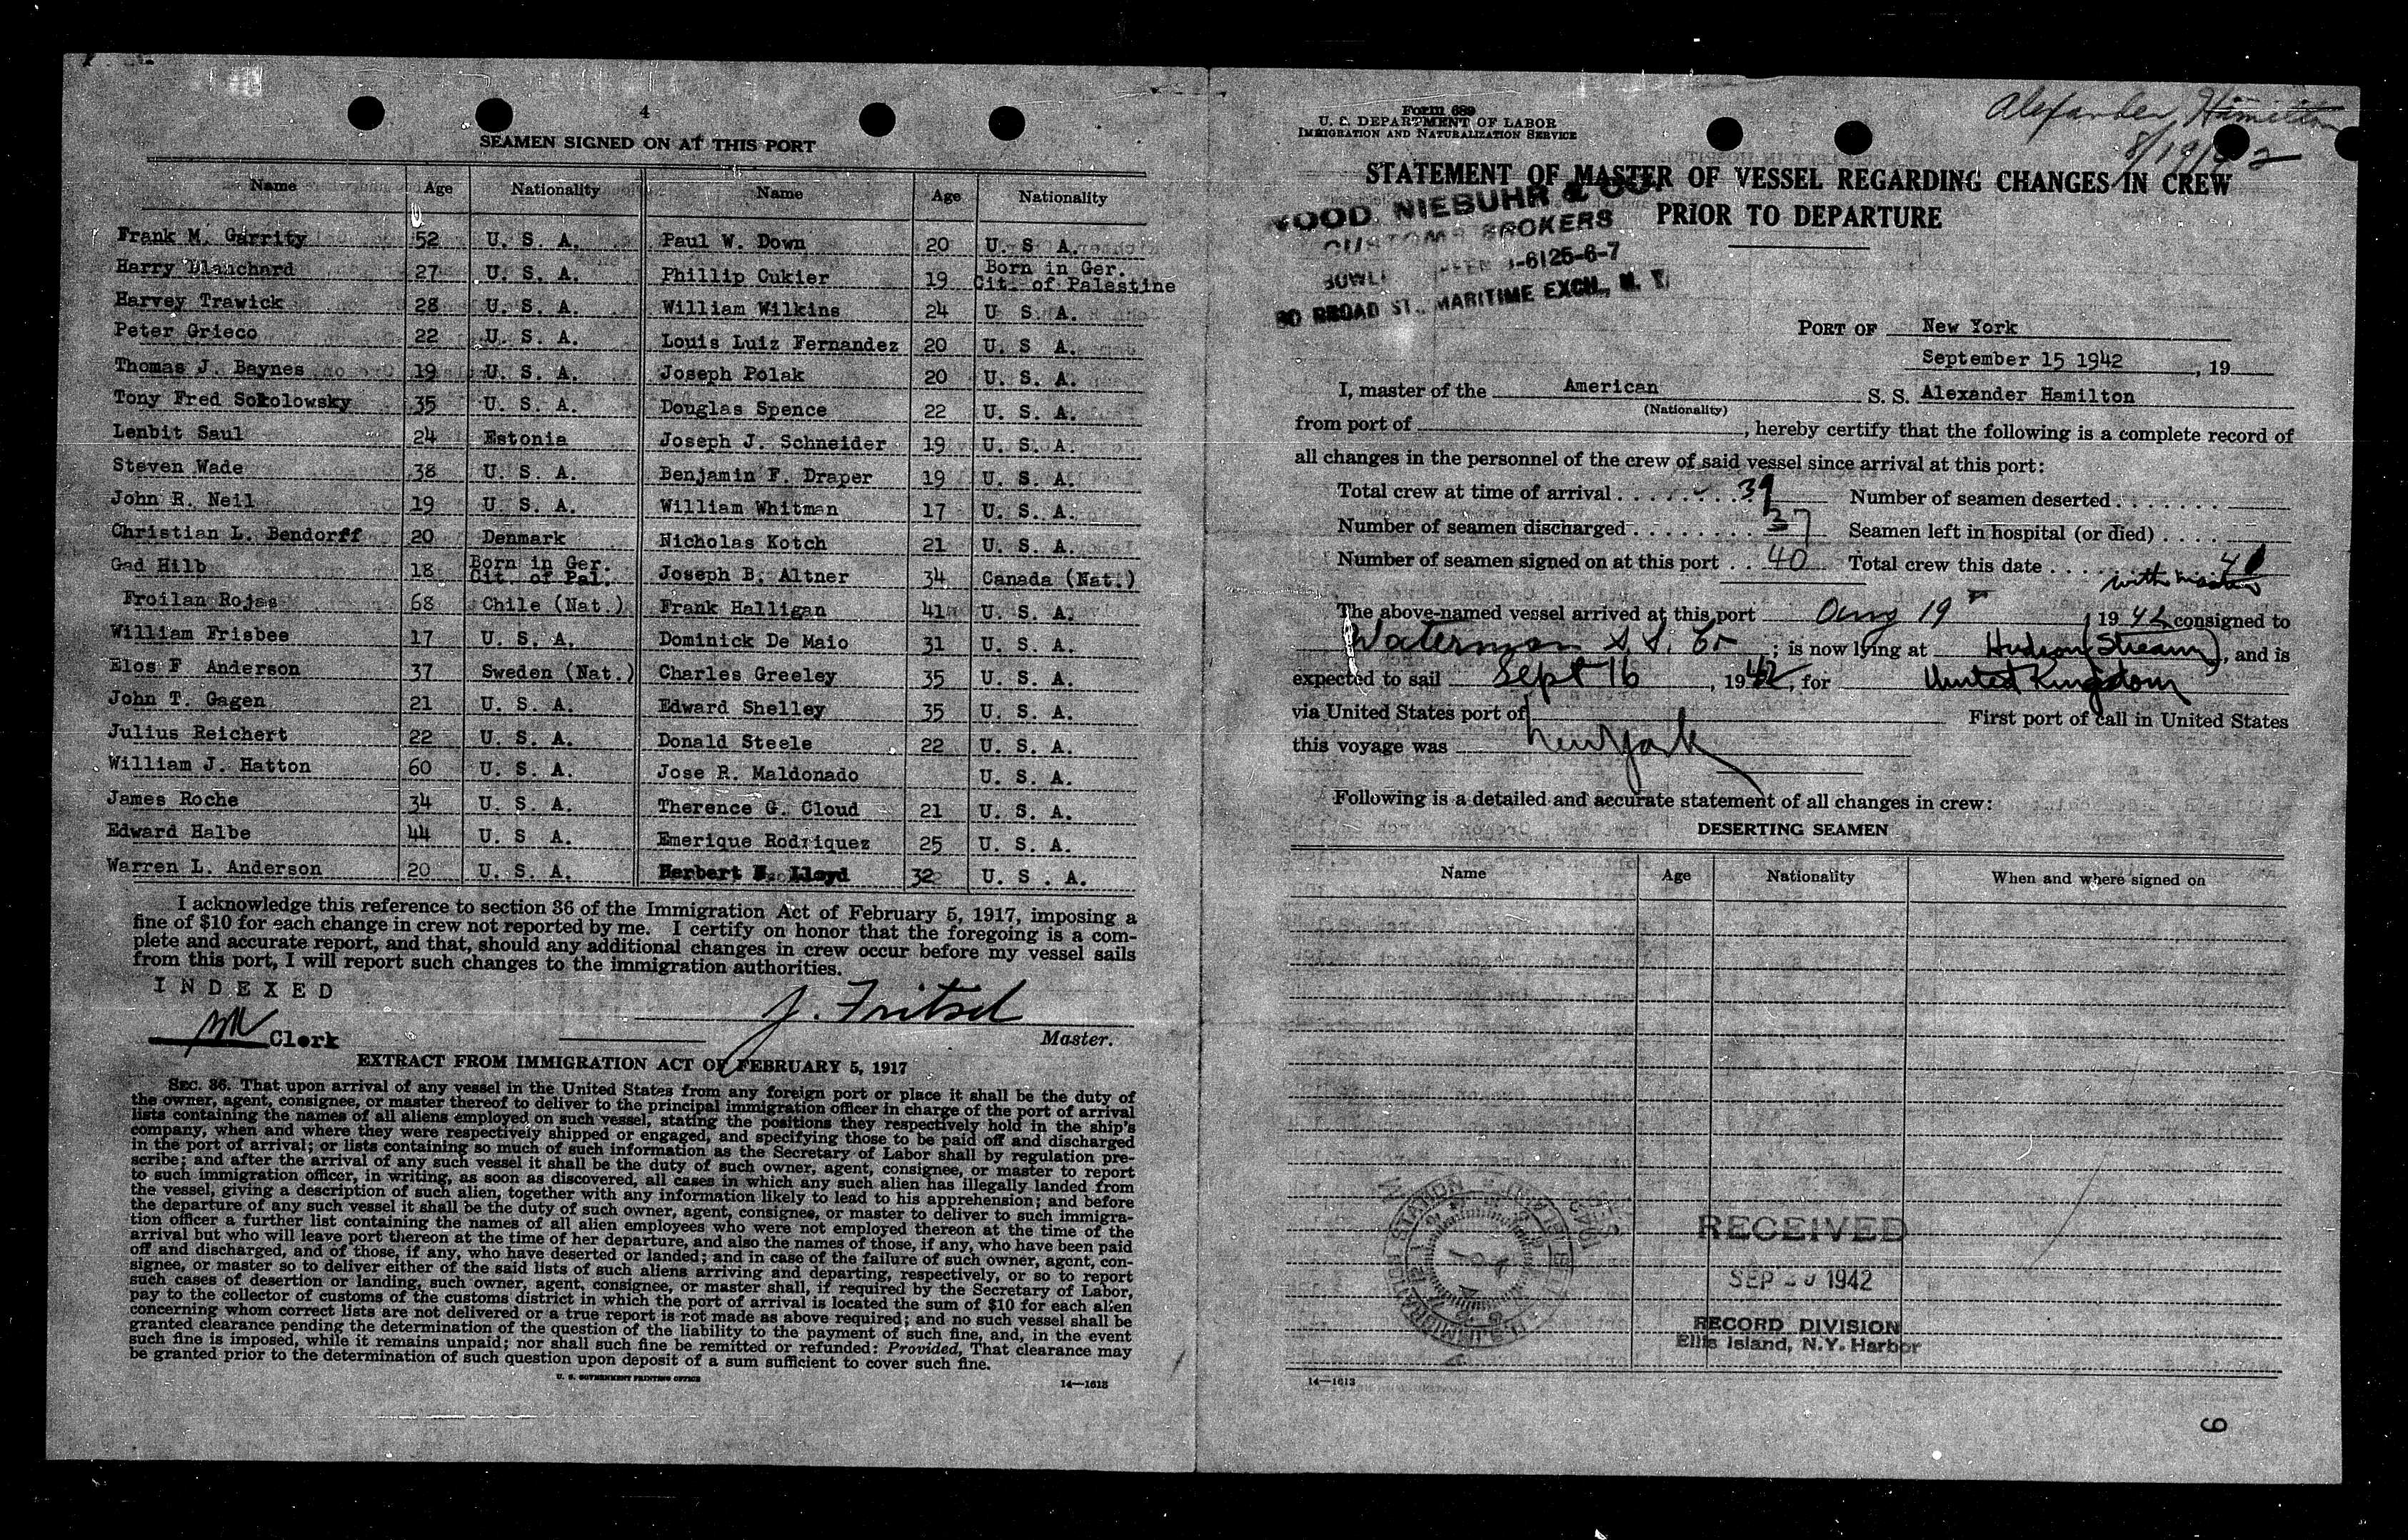 4
SEAMEN SIGNED ON AT THIS PORT
Name Age Nationality Name Age Nationality
Frank M. Garrity 52 U. S. A. Paul W. Down 20 U. S A.
Harry Blanchard 27 U. S. A. Phillip Cukier 19 Born in Ger. Cit. of Palestine
Harvey Trawick 28 U. S. A. William Wilkins 24 U S. A.
Peter Grieco 22 U. S. A. Louis Luiz Fernandez 20 U. S A.
Thomas J. Baynes 19 U. S. A. Joseph Polak 20 U. S. A.
Tony Fred Sokolowsky 35 U. S. A. Douglas Spence 22 U. S. A.
Lenbit Saul 24 Estonia Joseph J. Schneider 19 U. S. A.
Steven Wade 38 U. S. A. Benjamin F. Draper 19 U. S. A.
John R. Neil 19 U S. A. William Whitman 17 U. S. A.
Christian L. Bendorff 20 Denmark Nicholas Kotch 21 U. S. A.
Gad Hilb 18 Born in Ger. Cit. of Pal. Joseph B. Altner 34 Canada (Nat.)
Froilan Rojas 68 Chile (Nat.) Frank Halligan 41 U. S. A.
William Frisbee 17 U. S. A. Dominick De Maio 31 U. S. A.
Elos F Anderson 37 Sweden (Nat.) Charles Greeley 35 U. S. A.
John T. Gagen 21 U. S. A. Edward Shelley 35 U. S. A.
Julius Reichert 22 U. S. A. Donald Steele 22 U. S. A.
William J. Hatton 60 U. S. A. Jose R. Maldonado U. S. A.
James Roche 34 U. S. A. Therence G. Cloud 21 U. S. A.
Edward Halbe 44 U. S A. Emerique Rodriquez 25 U. S. A.
Warren L. Anderson 20 U. S. A. Herbert Lloyd 32 U. S . A.
I acknowledge this reference to section 36 of the Immigration Act of February 5, 1917, imposing a
fine of $10 for each change in crew not reported by me. I certify on honor that the foregoing is a com-
plete and accurate report, and that, should any additional changes in crew occur before my vessel sails
from this port, I will report such changes to the immigration authorities.
INDEXED
J. Fritsel
Clerk Master.
EXTRACT FROM IMMIGRATION ACT OF FEBRUARY 5, 1917
SEC. 36. That upon arrival of any vessel in the United States from any foreign port or place it shall be the duty of
the owner, agent, consignee, or master thereof to deliver to the principal immigration officer in charge of the port of arrival
lists containing the names of all aliens employed on such vessel, stating the positions they respectively hold in the ship's
company, when and where they were respectively shipped or engaged, and specifying those to be paid off and discharged
in the port of arrival; or lists containing so much of such information as the Secretary of Labor shall by regulation pre-
scribe; and after the arrival of any such vessel it shall be the duty of such owner, agent, consignee, or master to report
to such immigration officer, in writing, as soon as discovered, all cases in which any such alien has illegally landed from
the vessel, giving a description of such alien, together with any information likely to lead to his apprehension; and before
the departure of any such vessel it shall be the duty of such owner, agent, consignee, or master to deliver to such immigra-
tion officer a further list containing the names of all alien employees who were not employed thereon at the time of the
arrival but who will leave port thereon at the time of her departure, and also the names of those, if any, who have been paid
off and discharged, and of those, if any, who have deserted or landed; and in case of the failure of such owner, agent, con-
signee, or master so to deliver either of the said lists of such aliens arriving and departing, respectively, or so to report
such cases of desertion or landing, such owner, agent, consignee, or master shall, if required by the Secretary of Labor,
pay to the collector of customs of the customs district in which the port of arrival is located the sum of $10 for each alien
concerning whom correct lists are not delivered or a true report is not made as above required; and no such vessel shall be
granted clearance pending the determination of the question of the liability to the payment of such fine, and, in the event
such fine is imposed, while it remains unpaid; nor shall such fine be remitted or refunded: Provided, That clearance may
be granted prior to the determination of such question upon deposit of a sum sufficient to cover such fine.
U. S. GOVERNMENT PRINTING OFFICE 14—1613
Form 689
U. S. DEPARTMENT OF LABOR
IMMIGRATION AND NATURALIZATION SERVICE
Alexander Hamilton
8/19/42
STATEMENT OF MASTER OF VESSEL REGARDING CHANGES IN CREW
PRIOR TO DEPARTURE
WOOD, NIEBUHR & CO.
CUSTOMS BROKERS
-6125-6-7
80 BROAD ST., MARITIME EXCH., N. Y.
PORT OF New York
September 15 1942, 19
I, master of the American S. S. Alexander Hamilton
(Nationality)
from port of , hereby certify that the following is a complete record of
all changes in the personnel of the crew of said vessel since arrival at this port:
Total crew at time of arrival 39 Number of seamen deserted
Number of seamen discharged 37 Seamen left in hospital (or died)
Number of seamen signed on at this port 40 Total crew this date
with master
The above-named vessel arrived at this port Aug 19 1942 consigned to
Waterman S. S. Co ; is now lying at Hudson (Stream), and is
expected to sail Sept 16, 1942, for United Kingdom
via United States port of First port of call in United States
this voyage was New York
Following is a detailed and accurate statement of all changes in crew:
DESERTING SEAMEN
Name Age Nationality When and where signed on
RECEIVED
SEP 1942
RECORD DIVISION
Ellis Island, N.Y. Harbor
14—1613
9